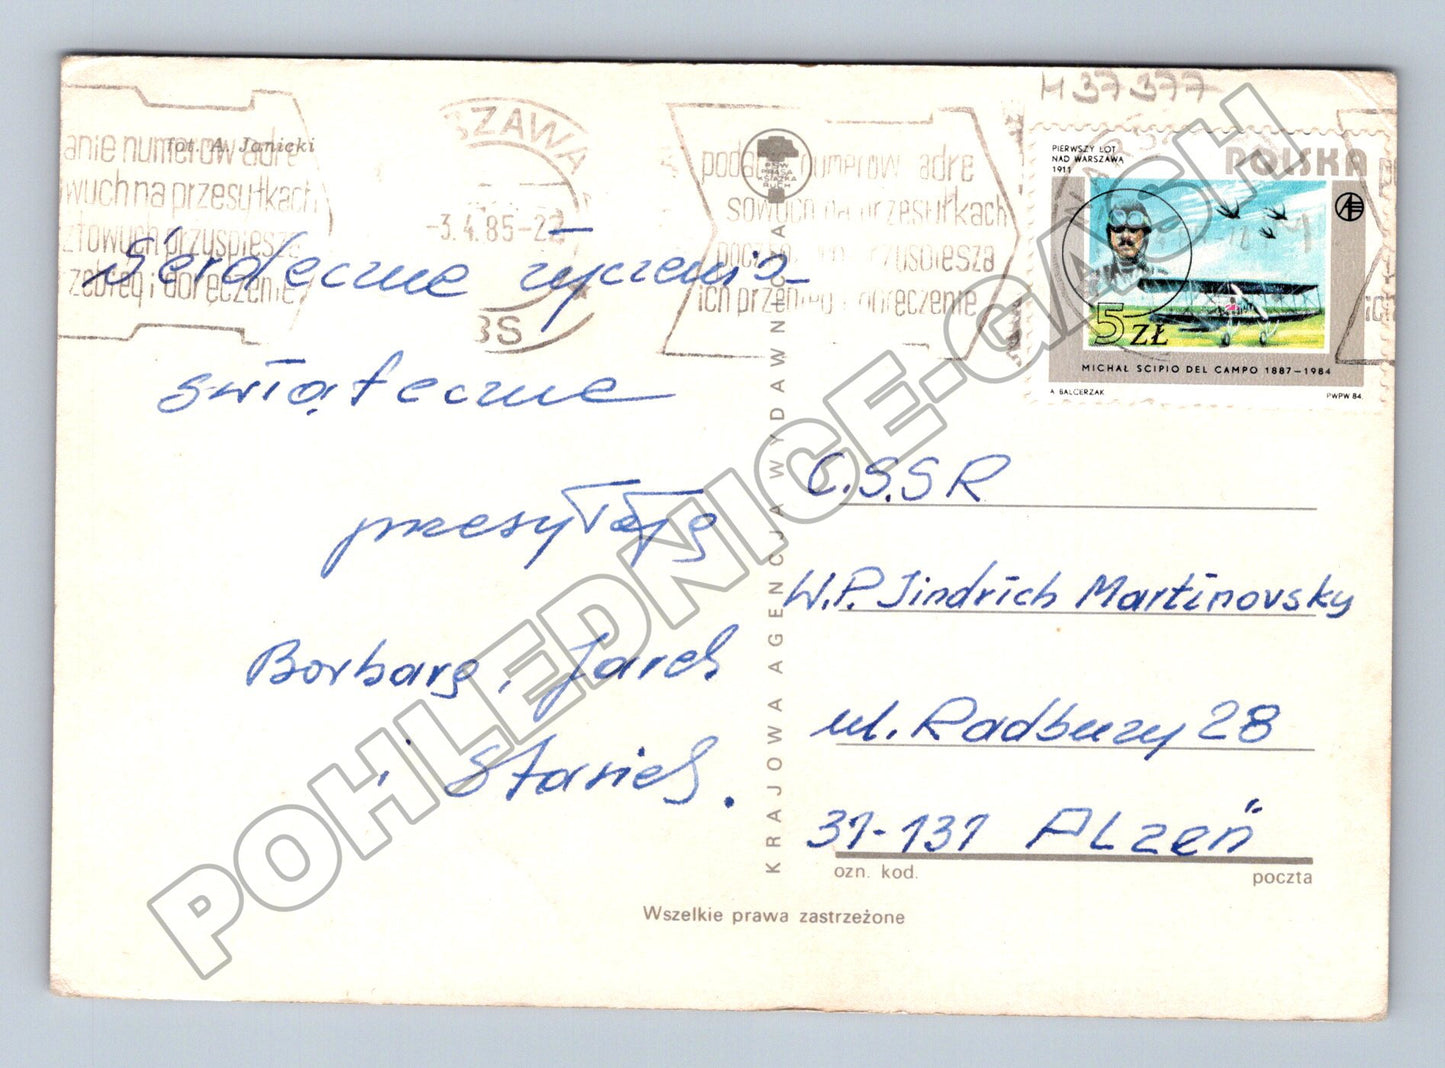 H37377
fot. A. Janicki
anie numerów adre
owych na przesyłkach
ztowych przyspiesza
zebieg i doręczenie
SZAWA
-3.4.85-22
podanie numerów adre
sowych na przesyłkach
pocztowych przyspiesza
ich przebieg i doręczenie
RSW
PRASA
KSIĄŻKA
RUCH
PIERWSZY LOT
NAD WARSZAWĄ
1911
POLSKA
5 ZŁ
MICHAŁ SCIPIO DEL CAMPO 1887-1984
A BALCERZAK
PWPW 84.
Serdeczne życzenia
świąteczne
przesyłają
Barbara, Jarek
i Stasiek.
KRAJOWA AGENCJA WYDAWNICZA
C.S.S.R
W.P. Jindrich Martinovsky
ul. Radbuzy 28
31-131 PLzeň
ozn. kod.
poczta
Wszelkie prawa zastrzeżone
POHLEDNICE-GASH